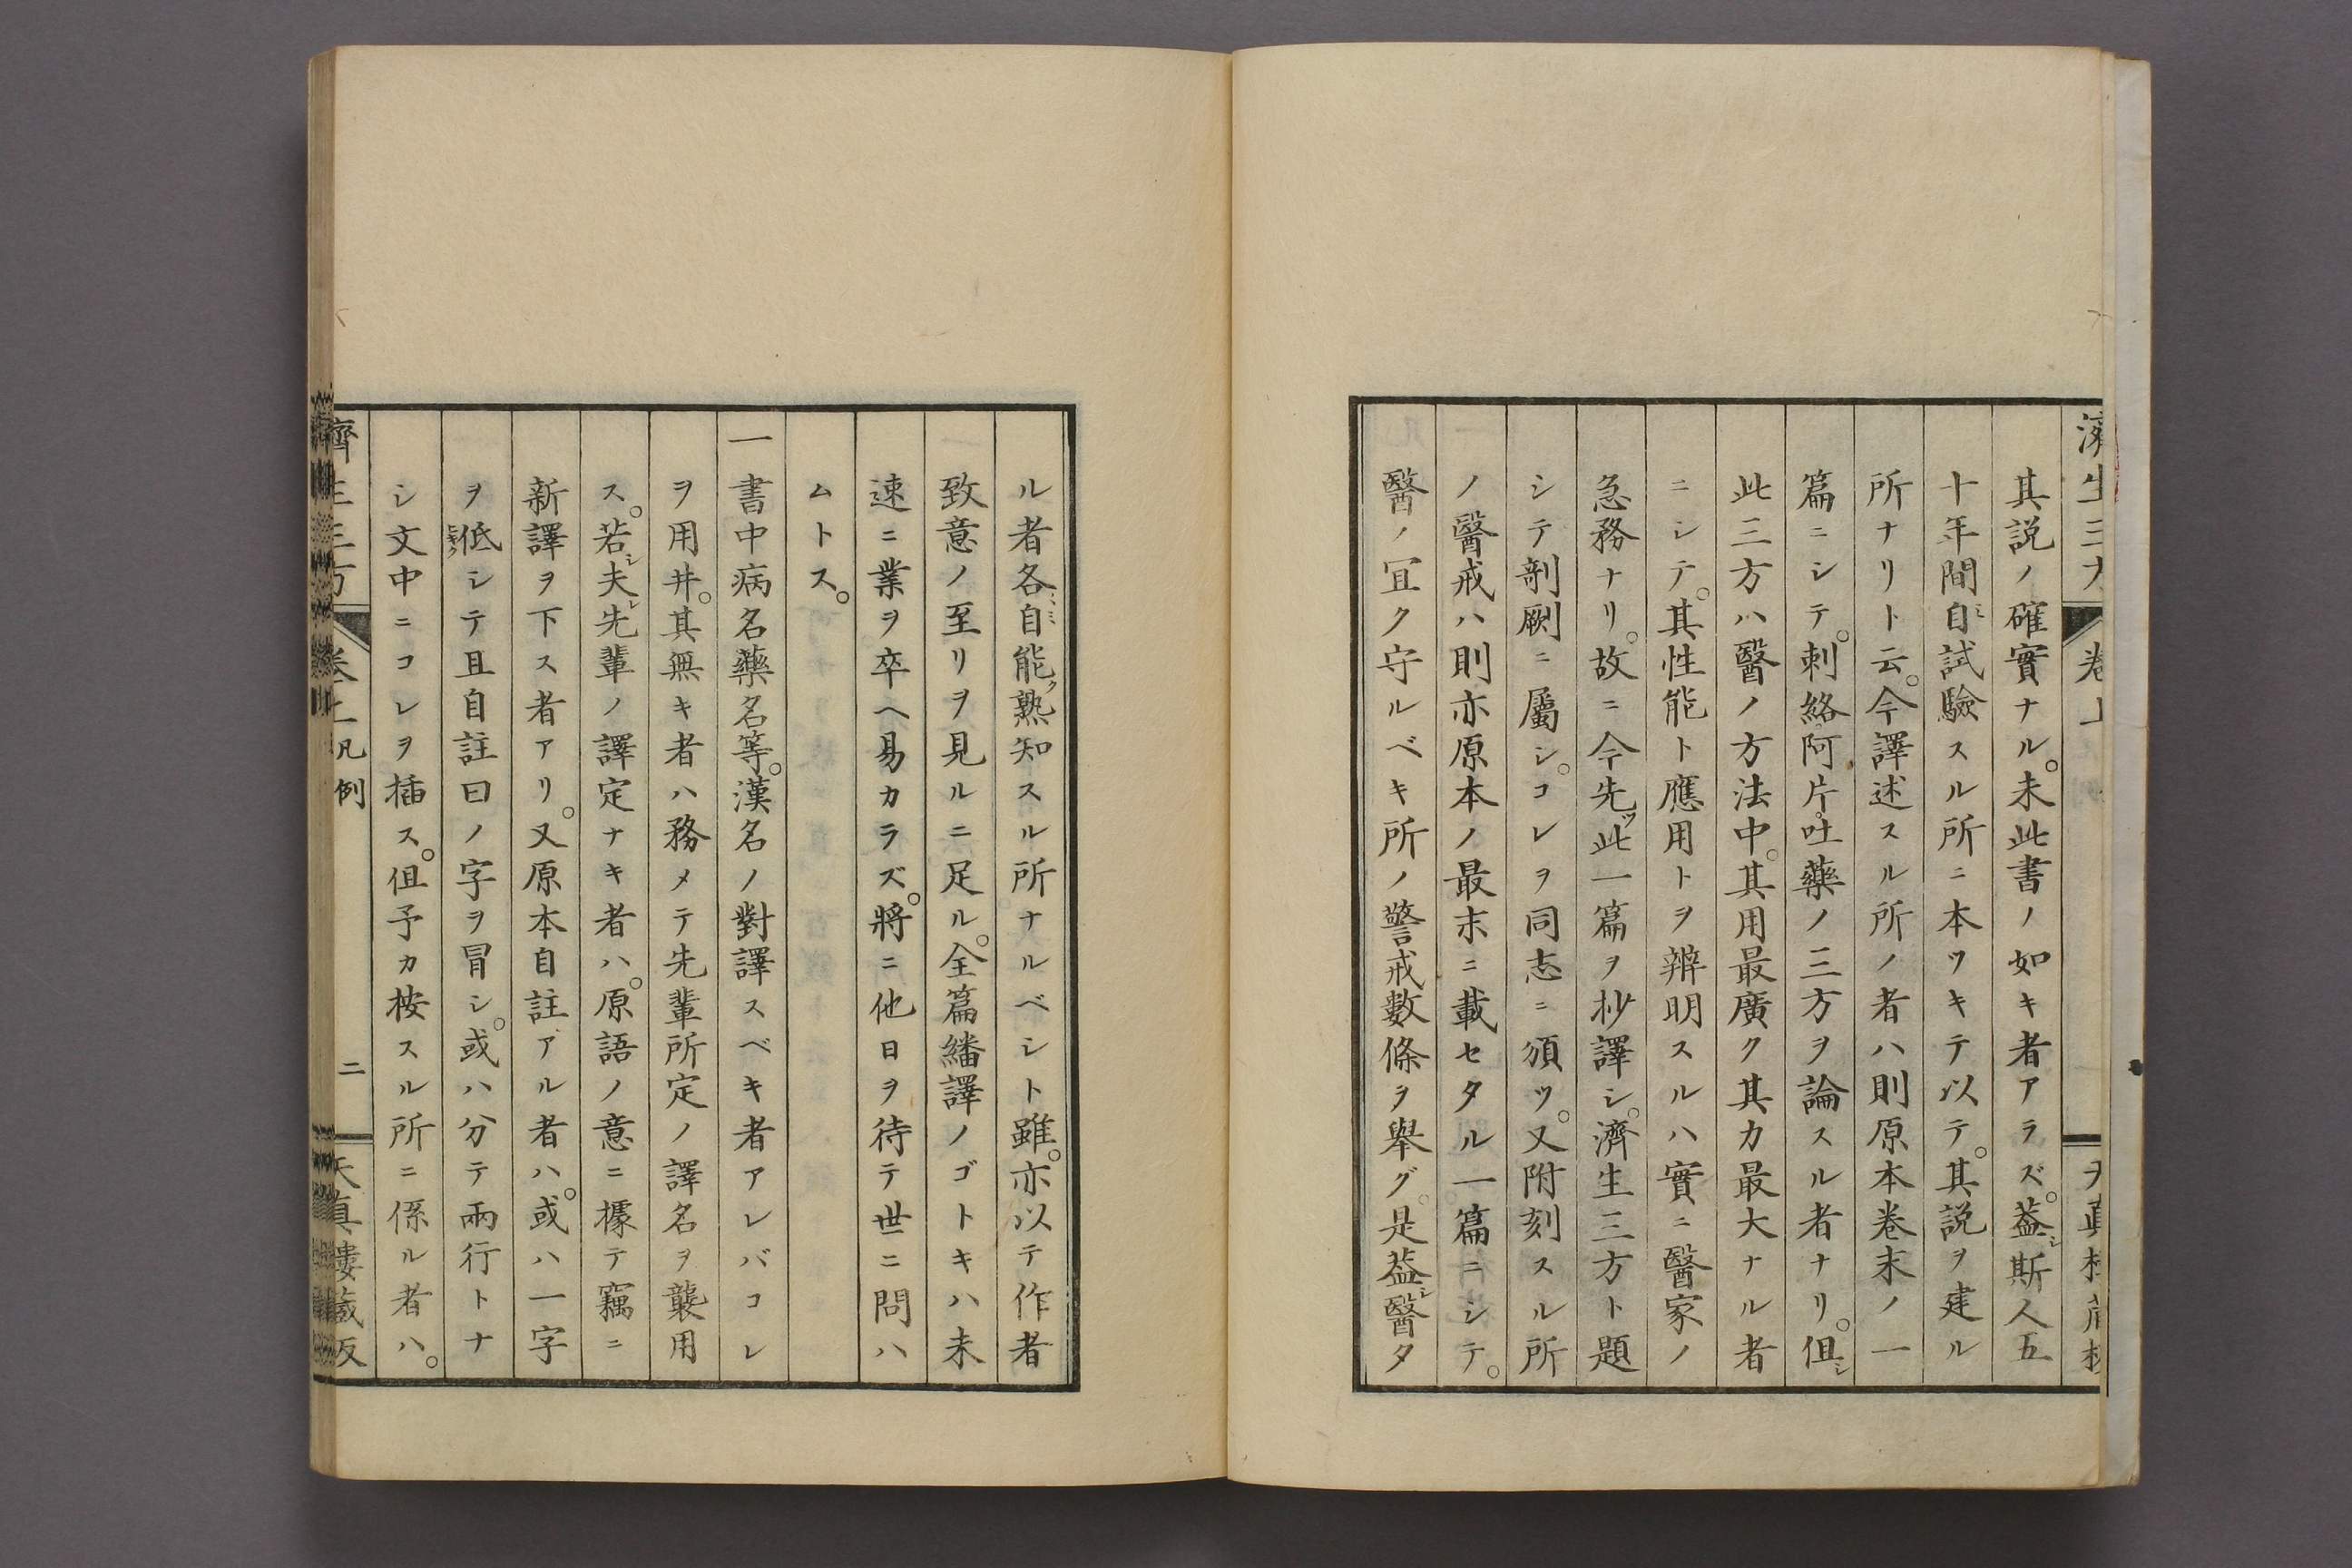 其説ノ確實ナル。未此書ノ如キ者アラズ。葢シ斯人五
十年間自ミ試驗スル所ニ本ツキテ以テ。其説ヲ建ル
所ナリト云。今譯述スル所ノ者ハ則原本卷末ノ一
篇ニシテ。刺絡阿片吐藥ノ三方ヲ論スル者ナリ。但シ
此三方ハ醫ノ方法中。其用最廣ク其力最大ナル者
ニシテ。其性能ト應用トヲ辨明スルハ實ニ醫家ノ
急務ナリ。故ニ今先ツ此一篇ヲ抄譯シ。濟生三方ト題
シテ剞劂ニ屬シ。コレヲ同志ニ頒ツ。又附刻スル所
ノ醫戒ハ則亦原本ノ最末ニ載セタル一篇ニシテ。
醫ノ宜ク守ルベキ所ノ警戒數條ヲ擧グ。是葢シ醫タ
ル者各〻自ミ能ク熟知スル所ナルベシト雖。亦以テ作者
致意ノ至リヲ見ルニ足ル。全篇繙譯ノゴトキハ未
速ニ業ヲ卒ヘ易カラズ。將ニ他日ヲ待テ世ニ問ハ
ムトス。
一書中病名藥名等。漢名ノ對譯スベキ者アレバコレ
ヲ用井。其無キ者ハ務メテ先輩所定ノ譯名ヲ襲用
ス。若シ夫レ先輩ノ譯定ナキ者ハ。原語ノ意ニ據テ竊ニ
新譯ヲ下ス者アリ。又原本自註アル者ハ。或ハ一字
ヲ低ヒキクシテ且自註曰ノ字ヲ冒シ。或ハ分テ兩行トナ
シ文中ニコレヲ插ス。但予カ按スル所ニ係ル者ハ。
卷上凡例
二
天真樓藏版